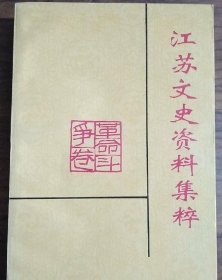 江苏文史资料集粹
革命斗
争卷